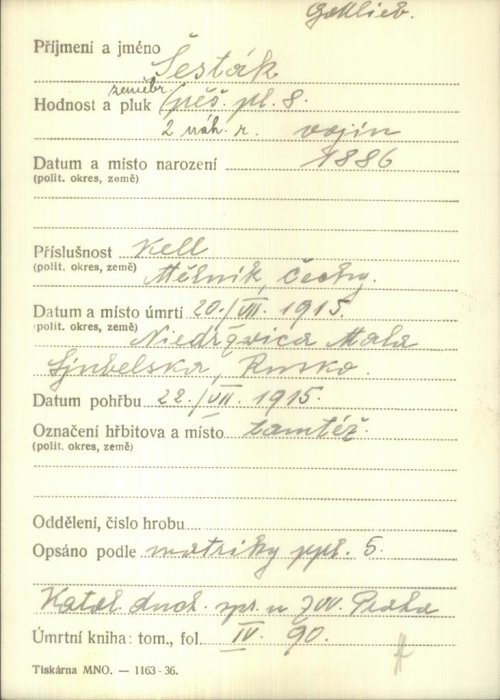 Gottlieb.
Příjmení a jméno Šesták
zeměbr.
Hodnost a pluk pěš. pl. 8.
2 náh. r. vojín
Datum a místo narození 1886
(polit. okres, země)
Příslušnost Kell
(polit. okres, země) Mělník, Čechy.
Datum a místo úmrtí 20./VII. 1915.
(polit. okres, země) Niedrzwica Mala
Ljubelska, Rusko.
Datum pohřbu 22./VII. 1915.
Označení hřbitova a místo tamtéž.
(polit. okres, země)
Oddělení, číslo hrobu
Opsáno podle matriky ppl. 5.
Katol. duch. spr. u ZVV. Praha
Úmrtní kniha: tom., fol. IV. 90.
Tiskárna MNO. — 1163-36.